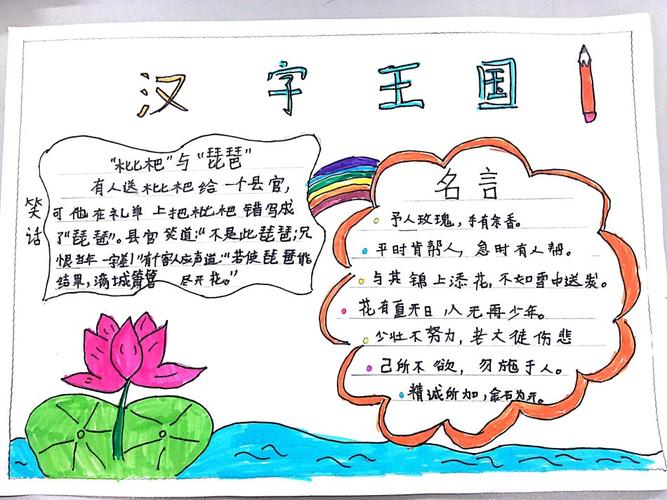 汉字王国
笑话
"枇杷"与"琵琶"
有人送枇杷给一个县官,
可他在礼单上把枇杷错写成
了"琵琶"。县官笑道:"不是此琵琶;只
恨当年一字差!"有个客人应声道:"若使琵琶能
结果,满城箫管尽开花。"
名言
予人玫瑰,手有余香。
平时肯帮人,急时有人帮。
与其锦上添花,不如雪中送炭。
花有重开日,人无再少年。
少壮不努力,老大徒伤悲
己所不欲,勿施于人。
精诚所加,金石为开。